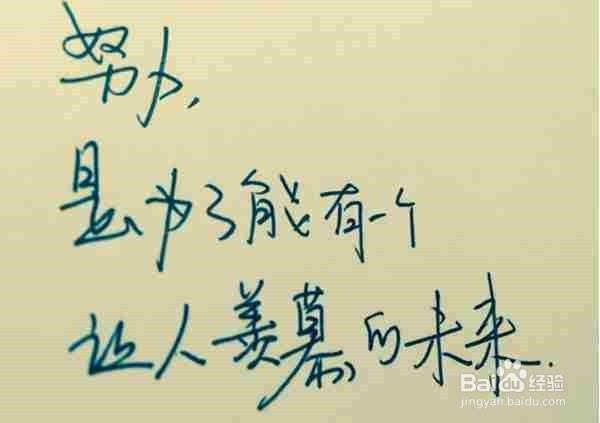 努力,
是为了能有一个
让人羡慕的未来.
Baidu经验
jingyan.baidu.com